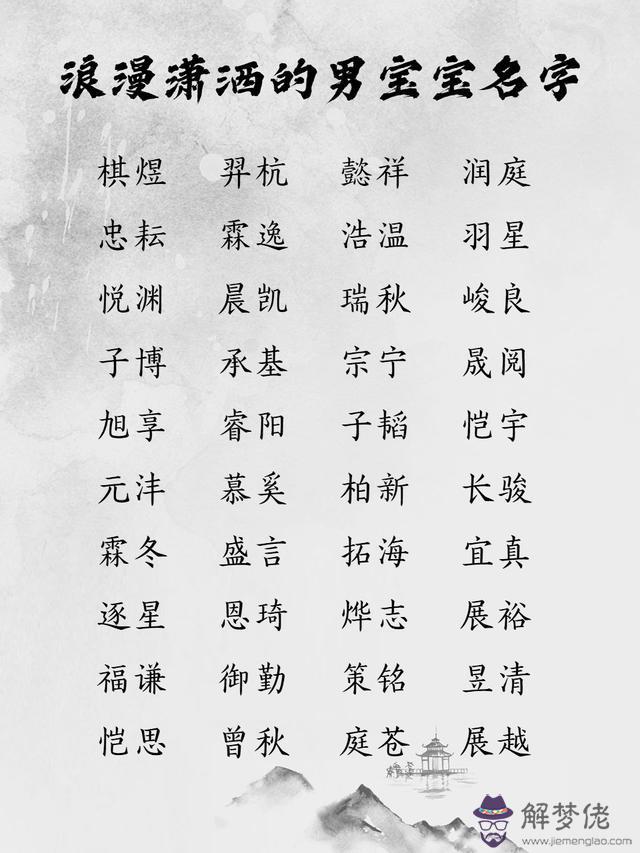 浪漫潇洒的男宝宝名字
棋煜 羿杭 懿祥 润庭
忠耘 霖逸 浩温 羽星
悦渊 晨凯 瑞秋 峻良
子博 承基 宗宁 晟阅
旭享 睿阳 子韬 恺宇
元沣 慕奚 柏新 长骏
霖冬 盛言 拓海 宜真
逐星 恩琦 烨志 展裕
福谦 御勤 策铭 昱清
恺思 曾秋 庭苍 展越
解梦佬
www.jiemenglao.com